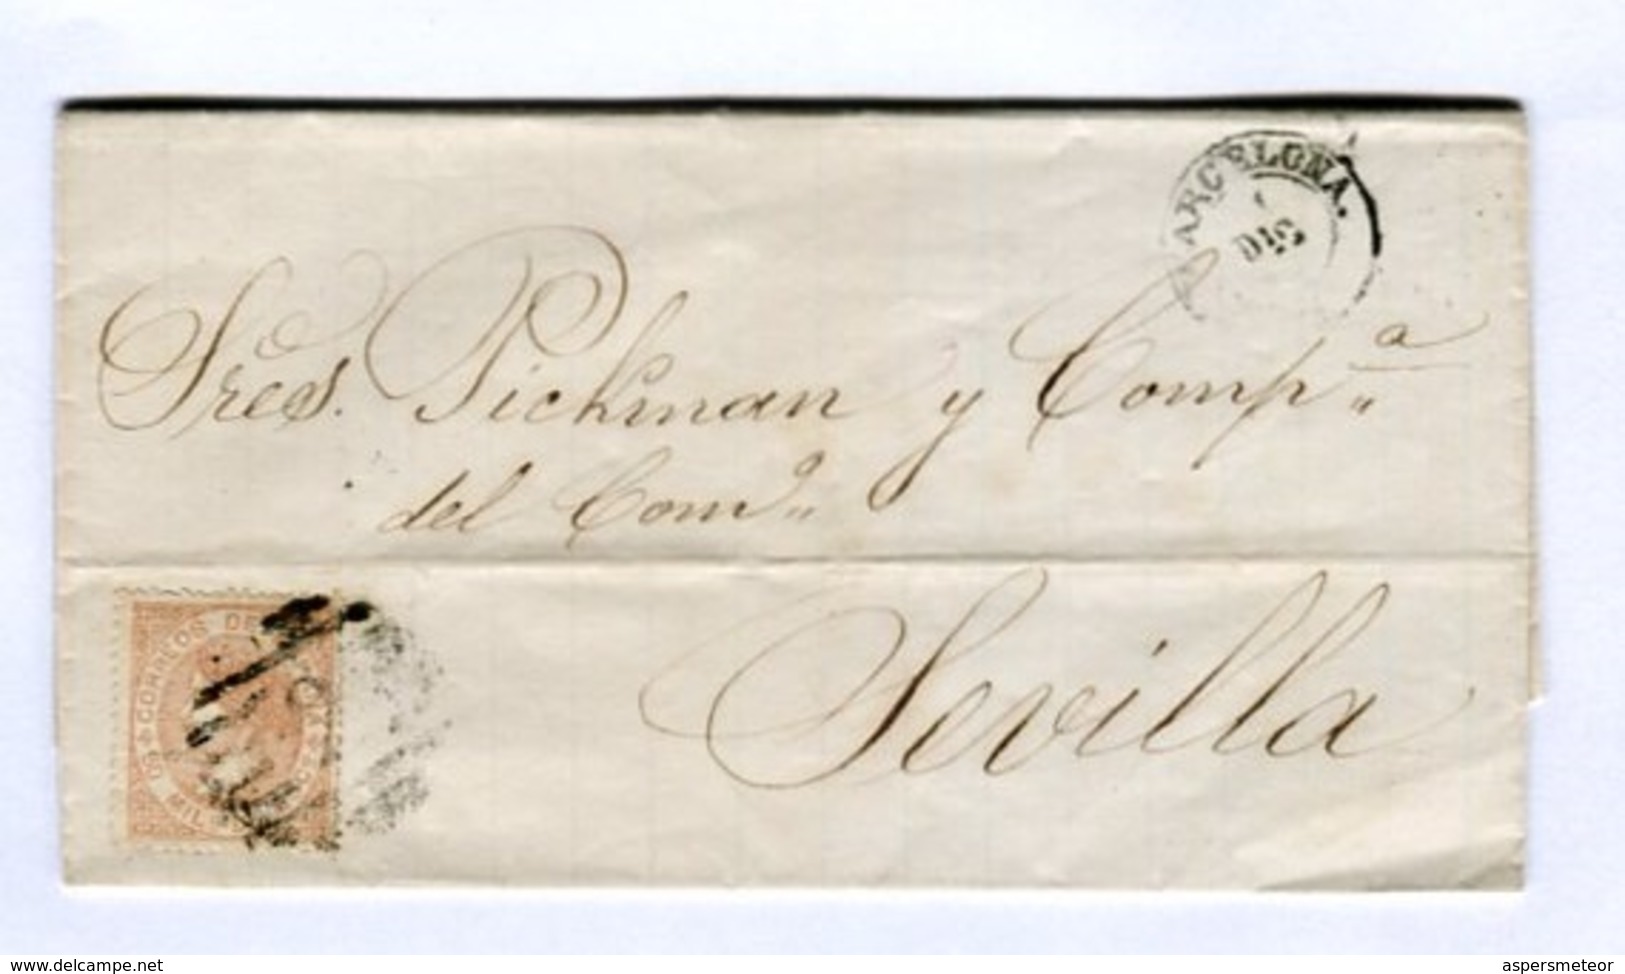 BARCELONA.
DIC
Sres. Pickman y Comp.ª
del Com.º
Sevilla
CORREOS DE
MIL
www.delcampe.net
aspersmeteor